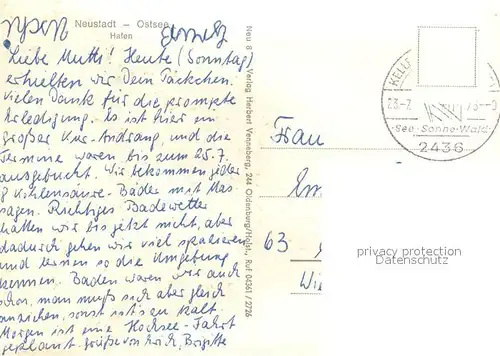 Neustadt – Ostsee
Hafen
Liebe Mutti! Heute (Sonntag)
erhielten wir Dein Päckchen.
Vielen Dank für die prompte
Erledigung. Es ist hier ein
großer Kur-Andrang, und die
Termine waren bis zum 25.7.
ausgebucht. Wir bekommen jeder
8 Kohlensäure-Bäder mit Mas-
sagen. Richtiges Badewetter
hatten wir bis jetzt nicht, aber
dadurch gehen wir viel spazieren
und lernen so die Umgebung
kennen. Baden waren wir auch
schon, man muß sich aber gleich
anziehen, sonst ist's zu kalt.
Morgen ist eine Hochsee-Fahrt
geplant. Grüße von Brigitte
Neu 8 Verlag Herbert Venneberg, 244 Oldenburg/Holst., Ruf 04361 / 2726
KELL
23.-7.
See·Sonne·Wald
2436
Frau
63
privacy protection
Datenschutz